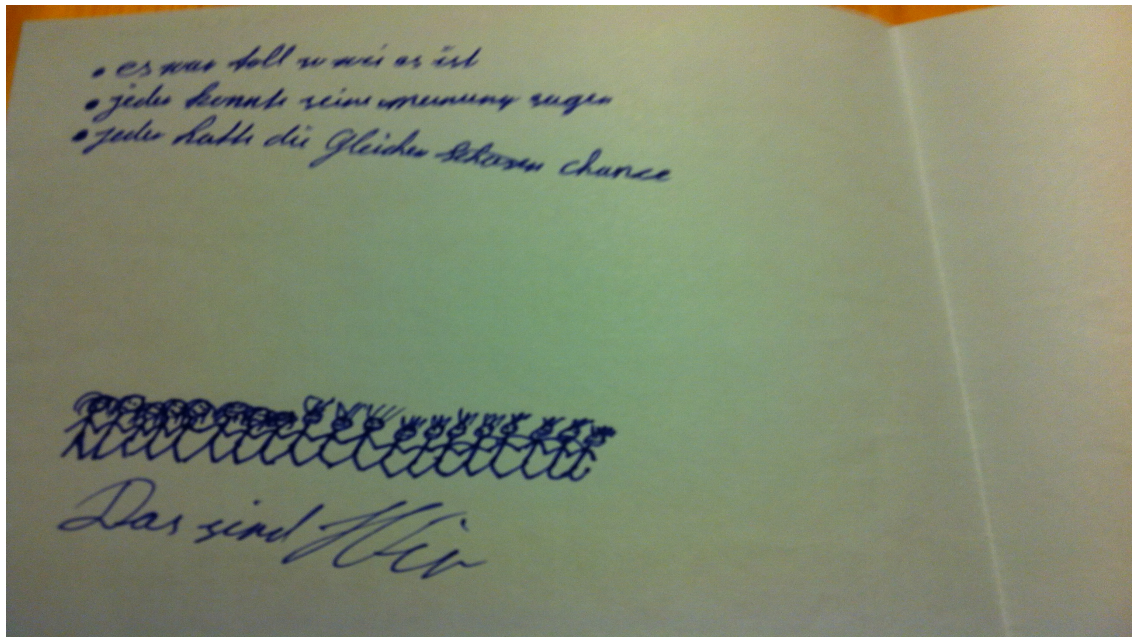 • es war toll so wei es ist
• jeder konnte seine meinung sagen
• jeder hatte die Gleichen chance
Das sind Wir